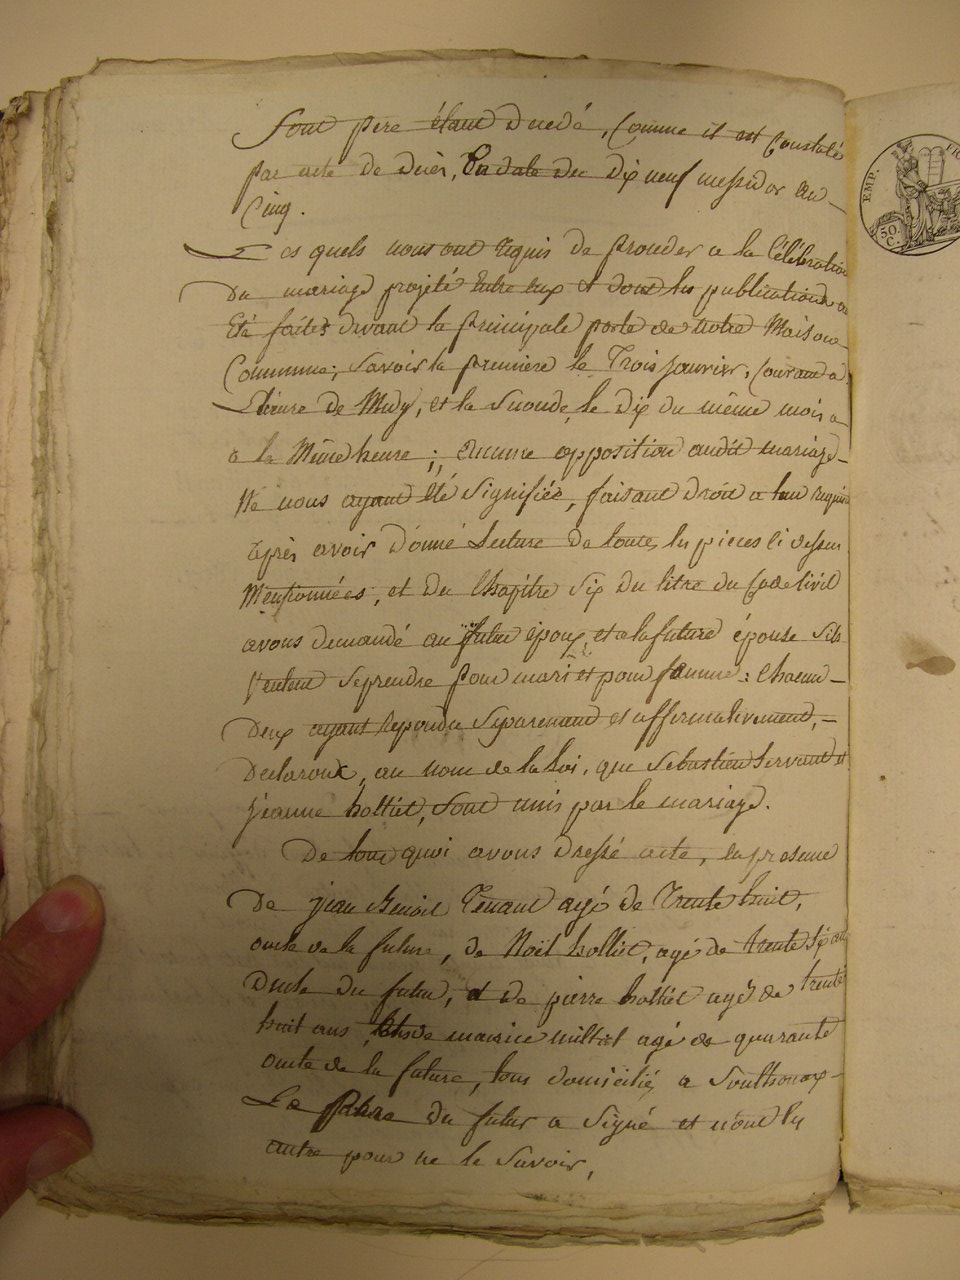 Sont pere étant Decedé, Comme il est Constaté
par acte de Decès, En date du Dix neuf messidor an
Cinq.
Les quels nous ont requis de proceder a la Célébration
Du mariage projeté Entre eux et dont les publications on
Eté faites devant la principale porte de notre Maison
Commune; Savoir la premiere le Trois janvier, Courant a
L'heure de Midy, et la Seconde, le Dix du même mois a
a la Même heure; aucune opposition audit mariage
Ne nous ayant été Signifiée, faisant droit a leur requis
après avoir Donné Lecture de toutes les pieces Ci dessus
Mentionnées, et du Chapitre Six du titre du Code Civil
avons demandé au futur époux et a la future épouse Sils
Veulent Se prendre pour mari et pour famme: Chacun
Deux ayant Repondu Separement et affirmativement,
Declarons, au nom de la Loi, que Sebastien Servant et
jeanne hottiet, Sont unis par le mariage.
De tout quoi avons Dressé acte, en presence
De jean Benoit Tenant agé de Trente huit,
oncle de la future, de Noël hottiet, agé de trente six ans
Doncle du futur, et de pierre hottiet agé de trente
huit ans, de maurice agé de quarante
oncle de la future, tous domiciliés a
Le Pere du futur a Signé et non les
autre pour ne le Savoir,
EMP. FR
50.
C.